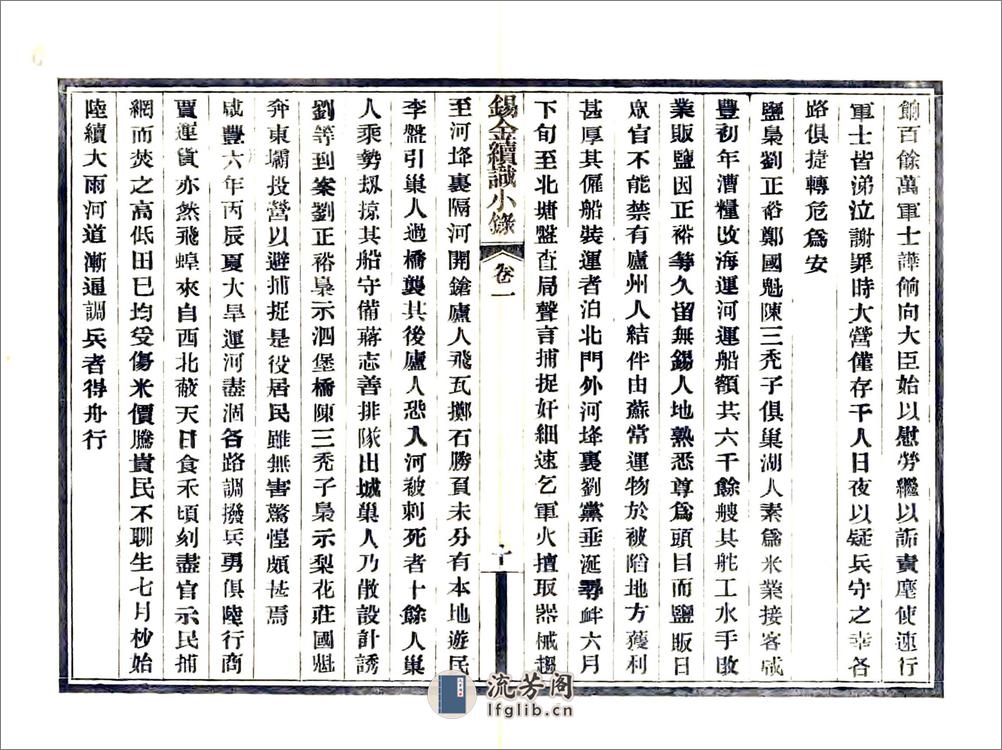 餉百餘萬軍士譁餉向大臣始以慰勞繼以詬責麾使速行
軍士皆涕泣謝罪時大營僅存千人日夜以疑兵守之幸各
路俱捷轉危爲安
鹽梟劉正裕鄭國魁陳三禿子俱巢湖人素爲米業接客咸
豐初年漕糧改海運河運船額共六千餘艘其舵工水手改
業販鹽因正裕等久留無錫人地熟悉尊爲頭目而鹽販日
眾官不能禁有廬州人結伴由蘇常運物於被陷地方獲利
甚厚其僱船裝運者泊北門外河埄裏劉黨垂涎尋衅六月
下旬至北塘盤查局聲言捕捉奸細速乞軍火擅取器械趨
錫金續識小錄
卷一
十
至河埄裏隔河開鎗廬人飛瓦擲石勝負未分有本地遊民
李盤引巢人過橋襲其後廬人恐入河被刺死者十餘人巢
人乘勢刼掠其船守備蔣志善排隊出城巢人乃散設計誘
劉等到案劉正裕梟示泗堡橋陳三禿子梟示梨花莊國魁
奔東壩投營以避捕捉是役居民雖無害驚惶頗甚焉
咸豐六年丙辰夏大旱運河盡涸各路調撥兵勇俱陸行商
賈運貨亦然飛蝗來自西北蔽天日食禾頃刻盡官示民捕
網而焚之高低田已均受傷米價騰貴民不聊生七月杪始
陸續大雨河道漸通調兵者得舟行
流芳阁
lfglib.cn